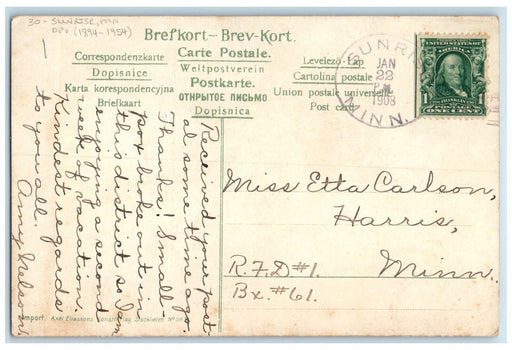 30- SUNRISE, MN
DPO (1894-1954)
Brefkort-Brev-Kort.
Carte Postale.
Correspondenzkarte
Weltpostverein
Levelező-Lap
Dopisnice
Postkarte.
Cartolina postale
Karta korespondencyjna
ОТКРЫТОЕ ПИСЬМО
Union postale universelle
Briefkaart
Dopisnica
Post card
SUNRISE
JAN
22
1908
MINN.
UNITED STATES OF AMERICA
1
FRANKLIN
ONE CENT
Received your post-
al some time ago.
Thanks! Small-
pox broke out in
this district so I am
enjoying a second
week of vacation.
Kindest regards
to you all.
Amy Nelson
Miss Etta Carlson,
Harris,
Minn.
R.F.D#1.
Bx.#61.
Import. Axel Eliassons Konstförlag Stockholm No